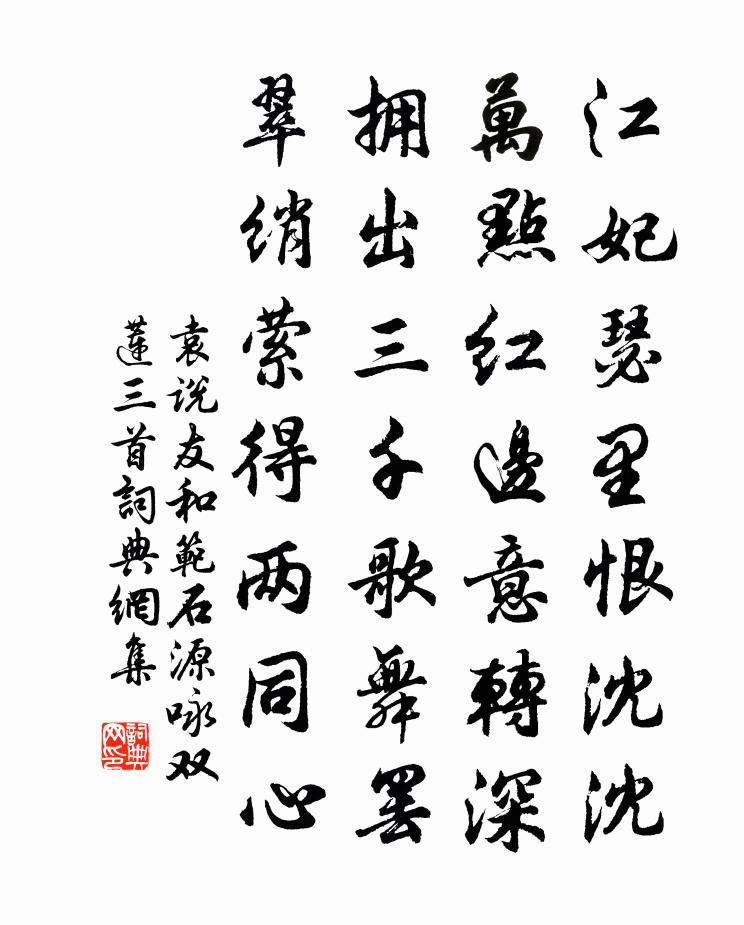 江妃瑟里恨沈沈
萬點紅邊意轉深
拥出三千歌舞罢
翠绡萦得两同心
袁说友和範石源咏双
蓮三首詞典網集
詞典网印